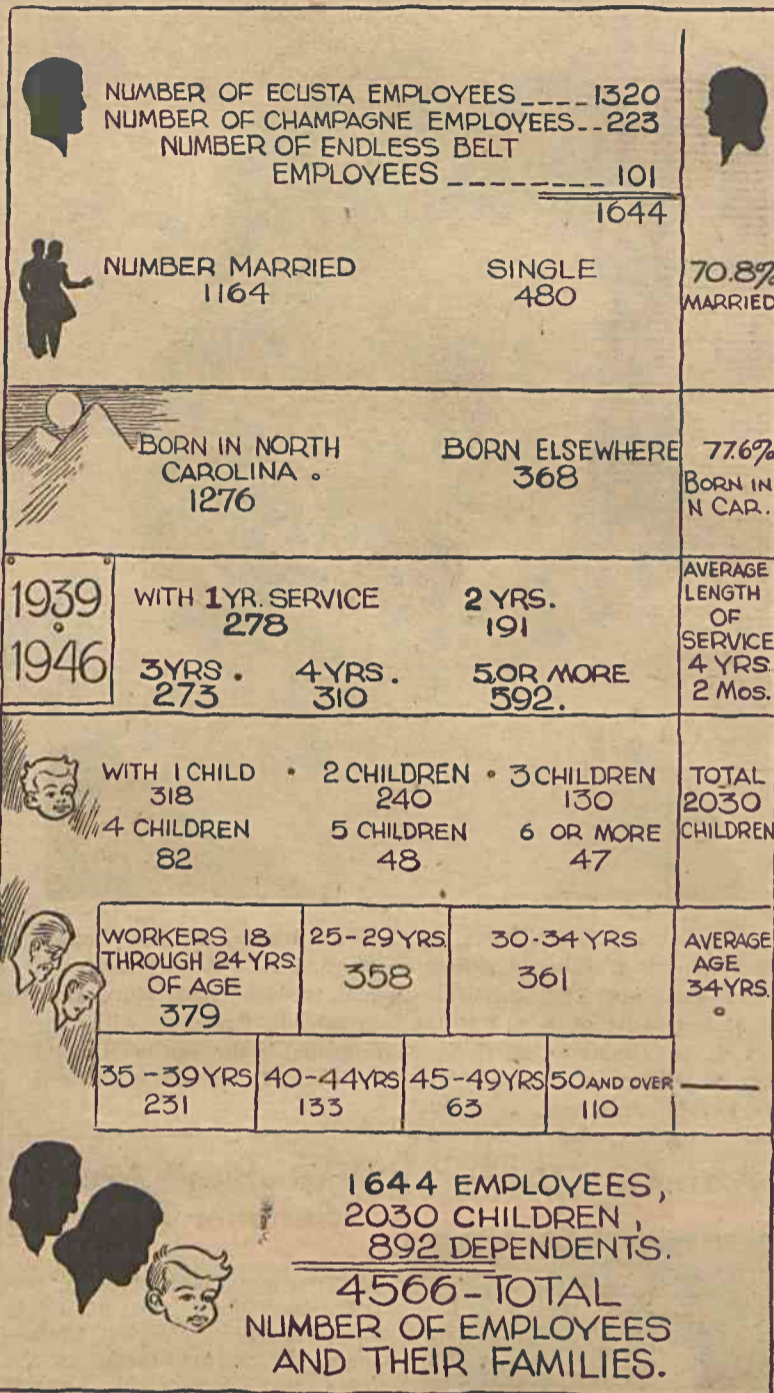 NUMBER OF ECUSTA EMPLOYEES____1320
NUMBER OF CHAMPAGNE EMPLOYEES__223
NUMBER OF ENDLESS BELT
EMPLOYEES _________ 101
1644
NUMBER MARRIED
1164
SINGLE
480
70.8%
MARRIED
BORN IN NORTH
CAROLINA.
1276
BORN ELSEWHERE
368
77.6%
BORN IN
N CAR.
1939
1946
WITH 1 YR. SERVICE
278
2 YRS.
191
3 YRS.
273
4 YRS.
310
5 OR MORE
592.
AVERAGE
LENGTH
OF
SERVICE
4 YRS.
2 Mos.
WITH 1 CHILD • 2 CHILDREN • 3 CHILDREN
318 240 130
4 CHILDREN 5 CHILDREN 6 OR MORE
82 48 47
TOTAL
2030
CHILDREN
WORKERS 18
THROUGH 24 YRS.
OF AGE
379
25-29 YRS.
358
30-34 YRS
361
AVERAGE
AGE
34 YRS.
35-39 YRS
231
40-44 YRS
133
45-49 YRS
63
50 AND OVER
110
1644 EMPLOYEES,
2030 CHILDREN,
892 DEPENDENTS.
4566-TOTAL
NUMBER OF EMPLOYEES
AND THEIR FAMILIES.